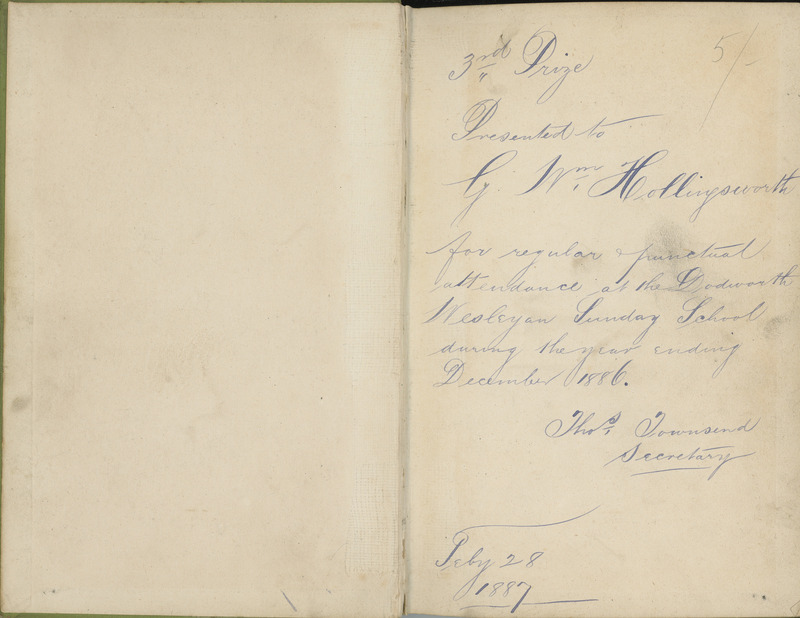 5/-
3rd Prize
Presented to
G. Wm. Hollingsworth
for regular & punctual
attendance at the Dodworth
Wesleyan Sunday School
during the year ending
December 1886.
Thos. Townsend
Secretary
Feby 28
1887